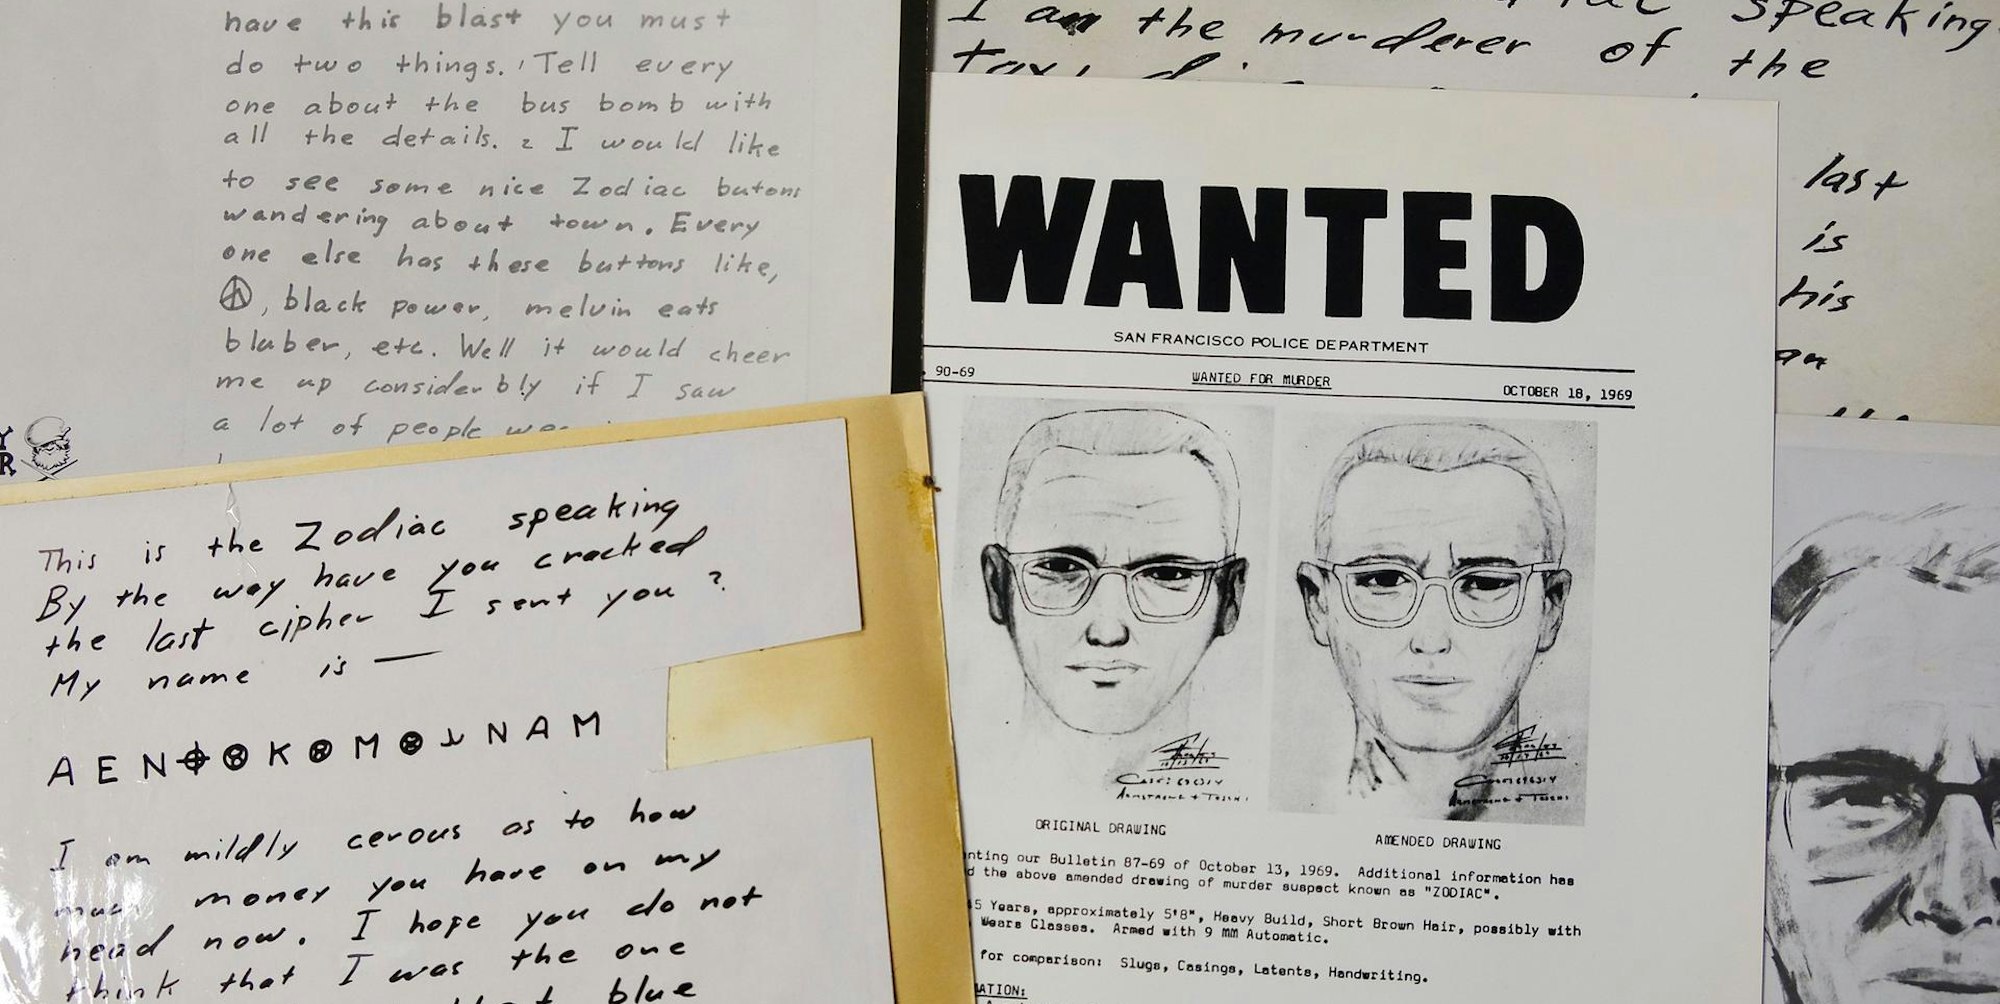 have this blast you must
do two things. 1 Tell every
one about the bus bomb with
all the details. 2 I would like
to see some nice Zodiac butons
wandering about town. Every
one else has these buttons like,
, black power, melvin eats
bluber, etc. Well it would cheer
me up considerbly if I saw
a lot of people
Y
R
This is the Zodiac speaking
By the way have you cracked
the last cipher I sent you?
My name is —
A E N ⌖ ⊗ K ⊗ M ⊗ N A M
I am mildly cerous as to how
much money you have on my
head now. I hope you do not
think that I was the one
blue
speaking
I am the murderer of the
last
is
his
an
WANTED
SAN FRANCISCO POLICE DEPARTMENT
90-69 WANTED FOR MURDER OCTOBER 18, 1969
ORIGINAL DRAWING AMENDED DRAWING
nting our Bulletin 87-69 of October 13, 1969. Additional information has
d the above amended drawing of murder suspect known as "ZODIAC".
5 Years, approximately 5'8", Heavy Build, Short Brown Hair, possibly with
Wears Glasses. Armed with 9 MM Automatic.
for comparison: Slugs, Casings, Latents, Handwriting.
ATION: